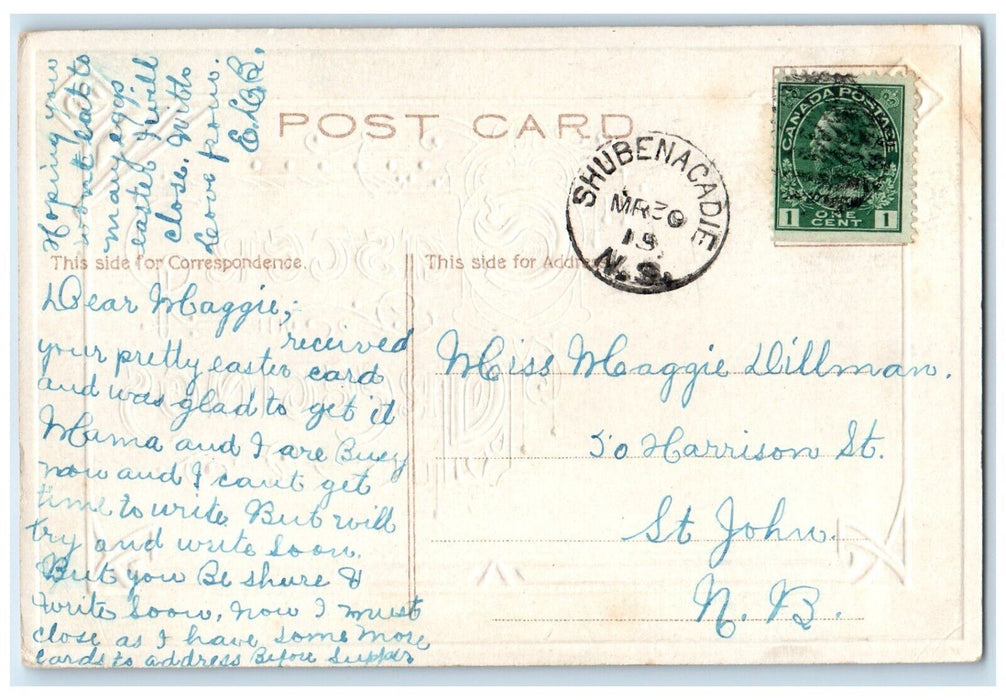 POST CARD
CANADA POSTAGE
1 ONE CENT 1
SHUBENACADIE
MR 30
N.S.
This side for Correspondence.
This side for Address
Dear Maggie;-
received
your pretty easter card
and was glad to get it
Mama and I are Buesy
now and I can't get
time to write. But will
try and write soon.
But you Be shure &
write soon, now I must
close as I have some more
cards to address Before Supper
Hoping you
wont eat to
many eggs
easter I will
close. With
Love from.
Miss Maggie Dillman.
50 Harrison St.
St John.
N. B.